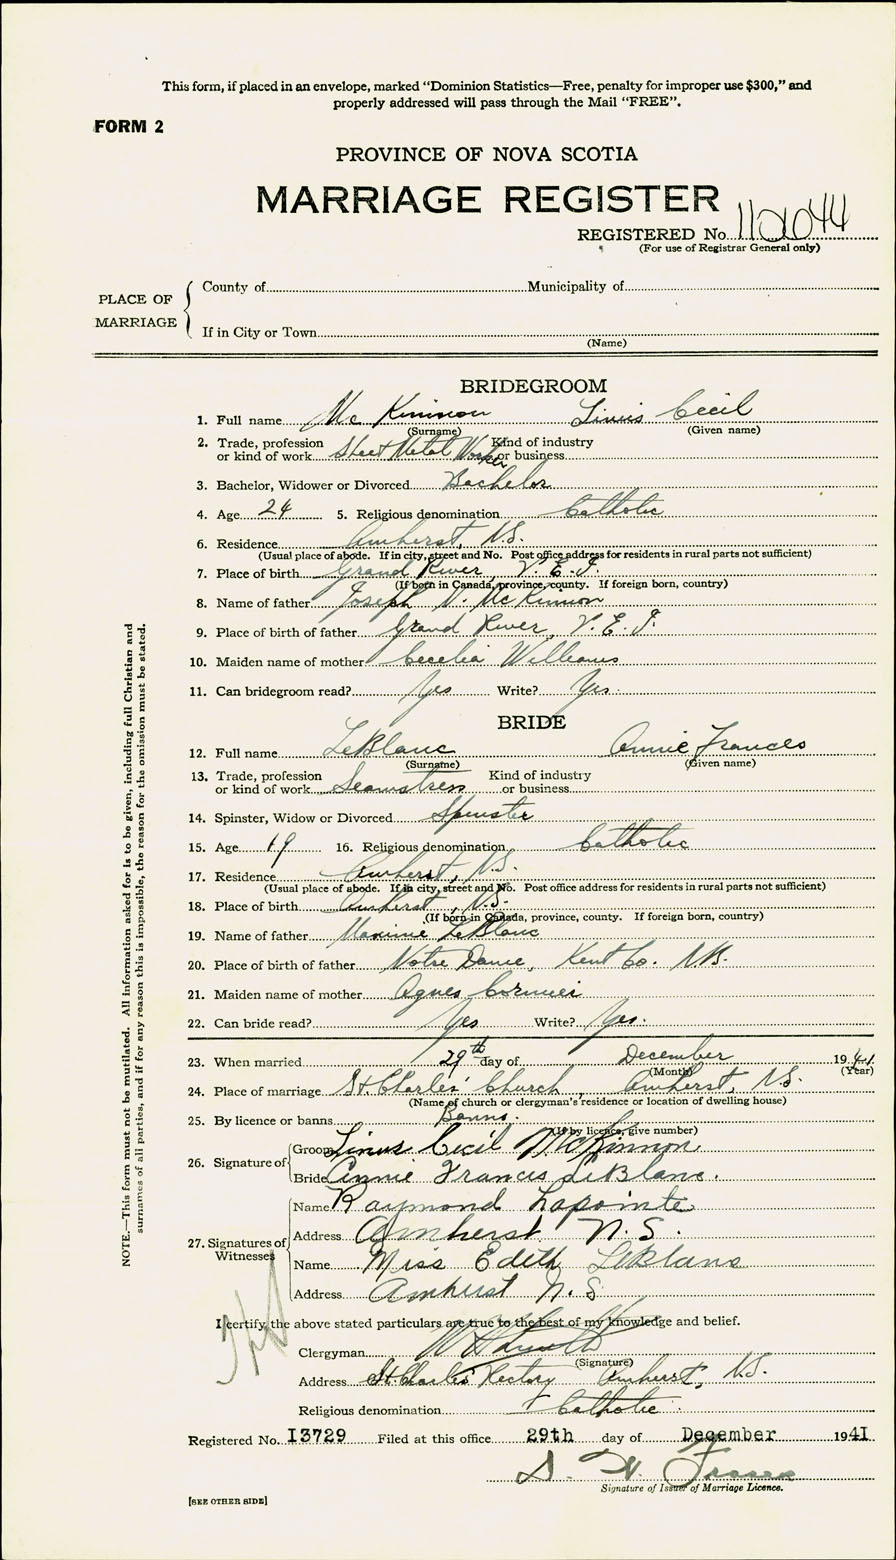 This form, if placed in an envelope, marked “Dominion Statistics—Free, penalty for improper use $300,” and
properly addressed will pass through the Mail “FREE”.
FORM 2
PROVINCE OF NOVA SCOTIA
MARRIAGE REGISTER
REGISTERED No.
(For use of Registrar General only)
PLACE OF MARRIAGE
County of Municipality of
If in City or Town
(Name)
BRIDEGROOM
1. Full name Mc Kinnon Linus Cecil
(Surname) (Given name)
2. Trade, profession or kind of work Sheet Metal Worker Kind of industry or business
3. Bachelor, Widower or Divorced Bachelor
4. Age 24 5. Religious denomination Catholic
6. Residence Amherst, N.S.
(Usual place of abode. If in city, street and No. Post office address for residents in rural parts not sufficient)
7. Place of birth Grand River, P.E.I.
(If born in Canada, province, county. If foreign born, country)
8. Name of father Joseph Mc Kinnon
9. Place of birth of father Grand River, P.E.I.
10. Maiden name of mother Cecelia Williams
11. Can bridegroom read? Yes Write? Yes.
BRIDE
12. Full name LeBlanc Annie Frances
(Surname) (Given name)
13. Trade, profession or kind of work Seamstress Kind of industry or business
14. Spinster, Widow or Divorced Spinster
15. Age 19 16. Religious denomination Catholic
17. Residence Amherst, N.S.
(Usual place of abode. If in city, street and No. Post office address for residents in rural parts not sufficient)
18. Place of birth Amherst, N.S.
(If born in Canada, province, county. If foreign born, country)
19. Name of father Maxime LeBlanc
20. Place of birth of father Notre Dame, Kent Co. N.B.
21. Maiden name of mother Agnes Cormier
22. Can bride read? Yes Write? Yes.
23. When married 29th day of December 1941
(Month) (Year)
24. Place of marriage St. Charles' Church, Amherst, N.S.
(Name of church or clergyman's residence or location of dwelling house)
25. By licence or banns Banns.
(If by licence, give number)
26. Signature of
Groom Linus Cecil McKinnon
Bride Annie Francis LeBlanc.
27. Signatures of Witnesses
Name Raymond Lapointe
Address Amherst N.S.
Name Miss Edith LeBlanc
Address Amherst N.S
I certify the above stated particulars are true to the best of my knowledge and belief.
Clergyman
(Signature)
Address St. Charles' Rectory Amherst, N.S.
Religious denomination Catholic
Registered No. 13729 Filed at this office 29th day of December 1941
Signature of Issuer of Marriage Licence.
[SEE OTHER SIDE]
NOTE.—This form must not be mutilated. All information asked for is to be given, including full Christian and
surnames of all parties, and if for any reason this is impossible, the reason for the omission must be stated.